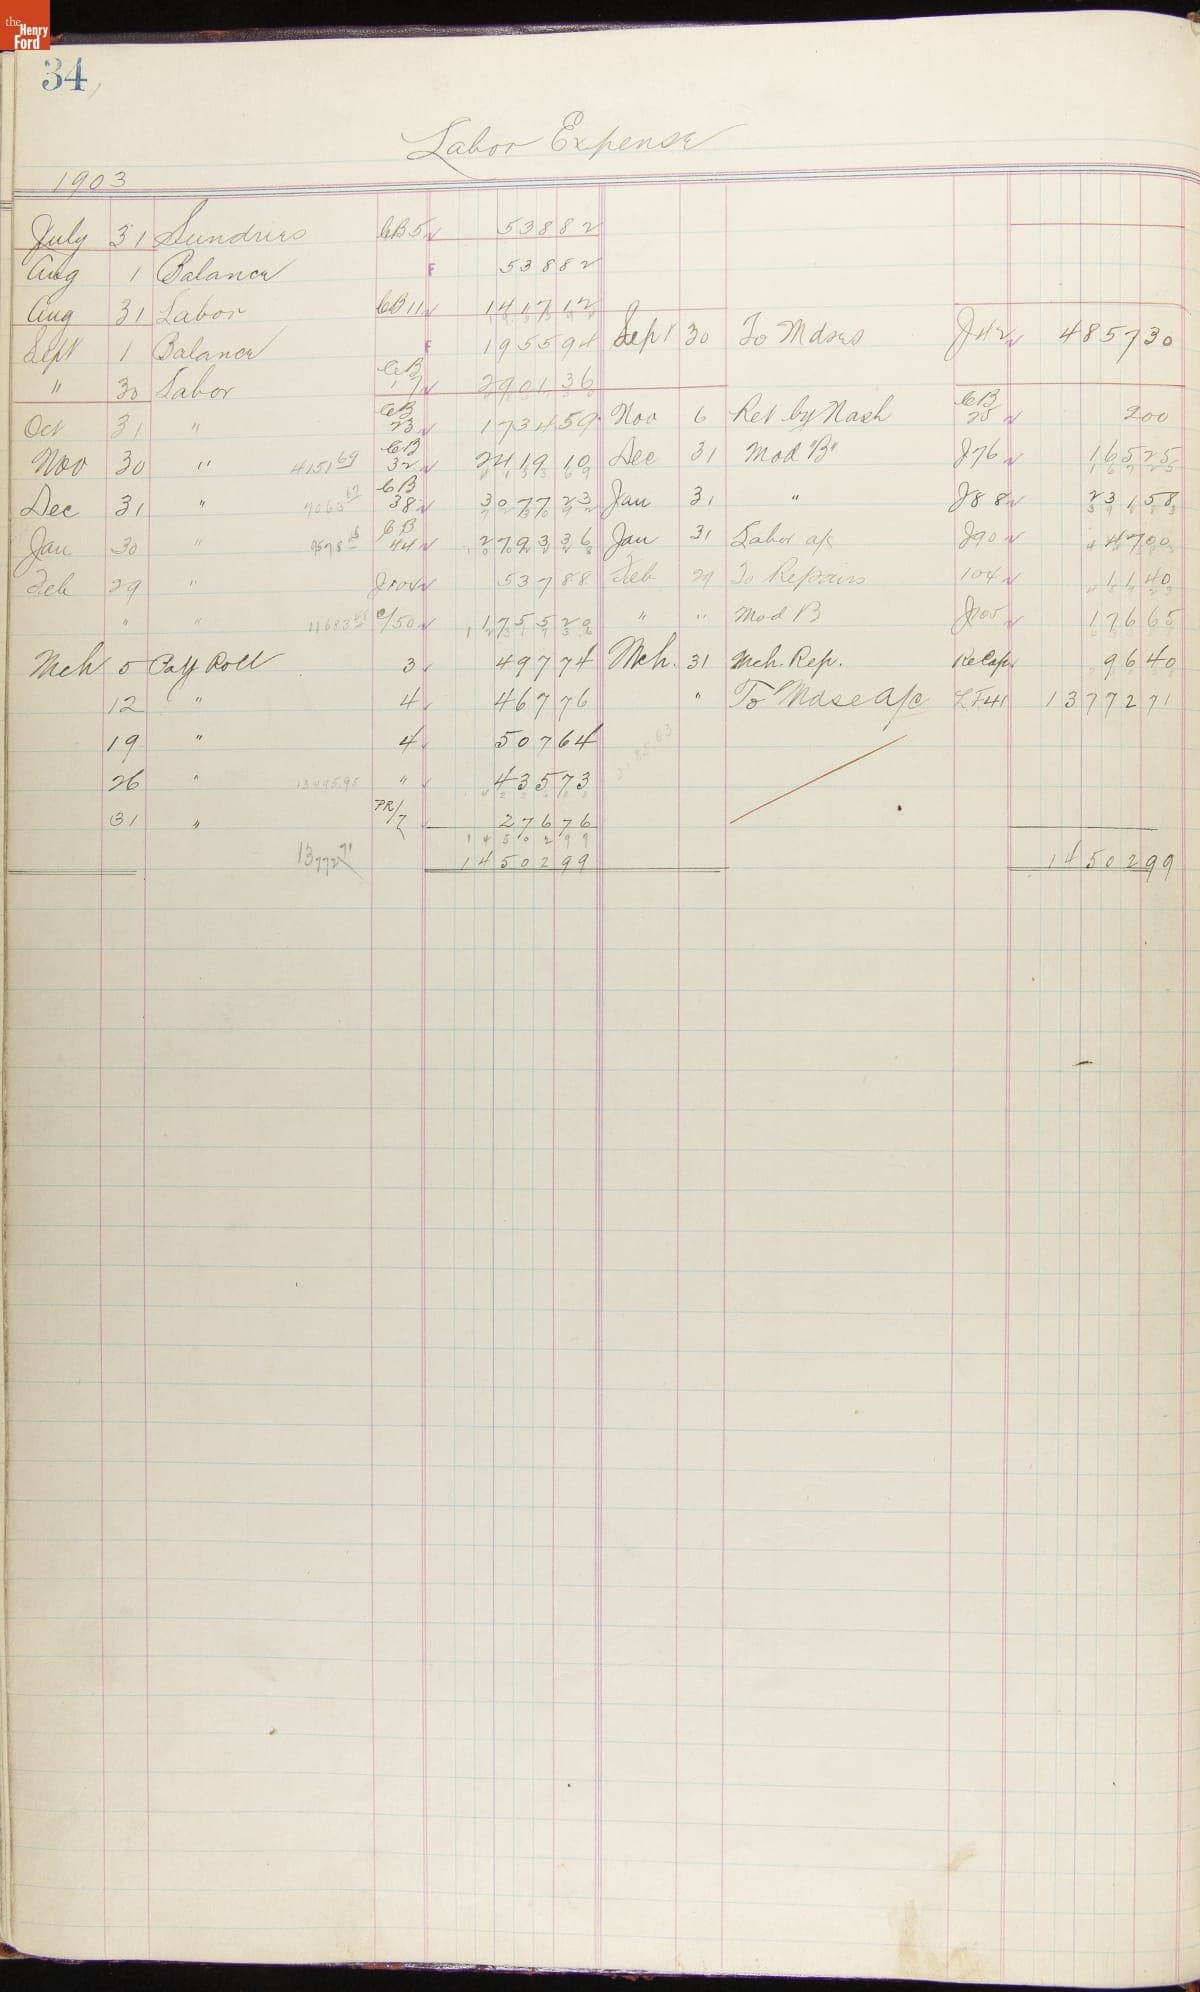 the Henry Ford
34
Labor Expense
1903
July 31 Sundries CB5 538 82
Aug 1 Balance F 538 82
Aug 31 Labor CB11 1417 12
Sept 1 Balance F 1955 94 Sept 30 To Mdses J42 4857 30
" 30 Labor CB 17 2901 36
Oct 31 " CB 23 1734 59 Nov 6 Ret by Nash CB 25 2 00
Nov 30 " 4151 69 CB 32 2419 10 Dec 31 Mod "B" J76 165 25
Dec 31 " 7063 67 CB 38 3077 23 Jan 31 " J88 231 58
Jan 30 " CB 44 2793 36 Jan 31 Labor a/c J90 47 00
Feb 29 " J104 537 88 Feb 29 To Repairs 104 11 40
" " 11683 C/50 1755 20 " " Mod B J105 176 65
Mch 5 Pay Roll 3 497 74 Mch. 31 Mch. Rep. ReCap 96 40
12 " 4 467 76 " To Mdse a/c LF41 13772 71
19 " 4 507 64
26 " 13495.95 " 435 73
31 " PR/7 276 76
14502 99
13772 71 14502 99 14502 99